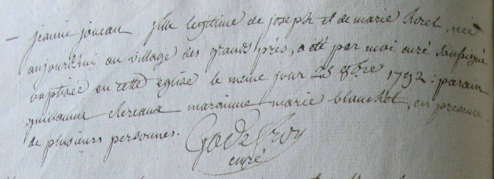 – jeanne joneau fille legitime de joseph et de marie huet, née
aujourd'hui au village des grands prés, a été par moi curé soussigné
baptisée en cette église le meme jour 25 8bre 1792 : parain
guillaume chereaux maraine marie blanchet, en presence
de plusieurs personnes.
Godefroy
curé